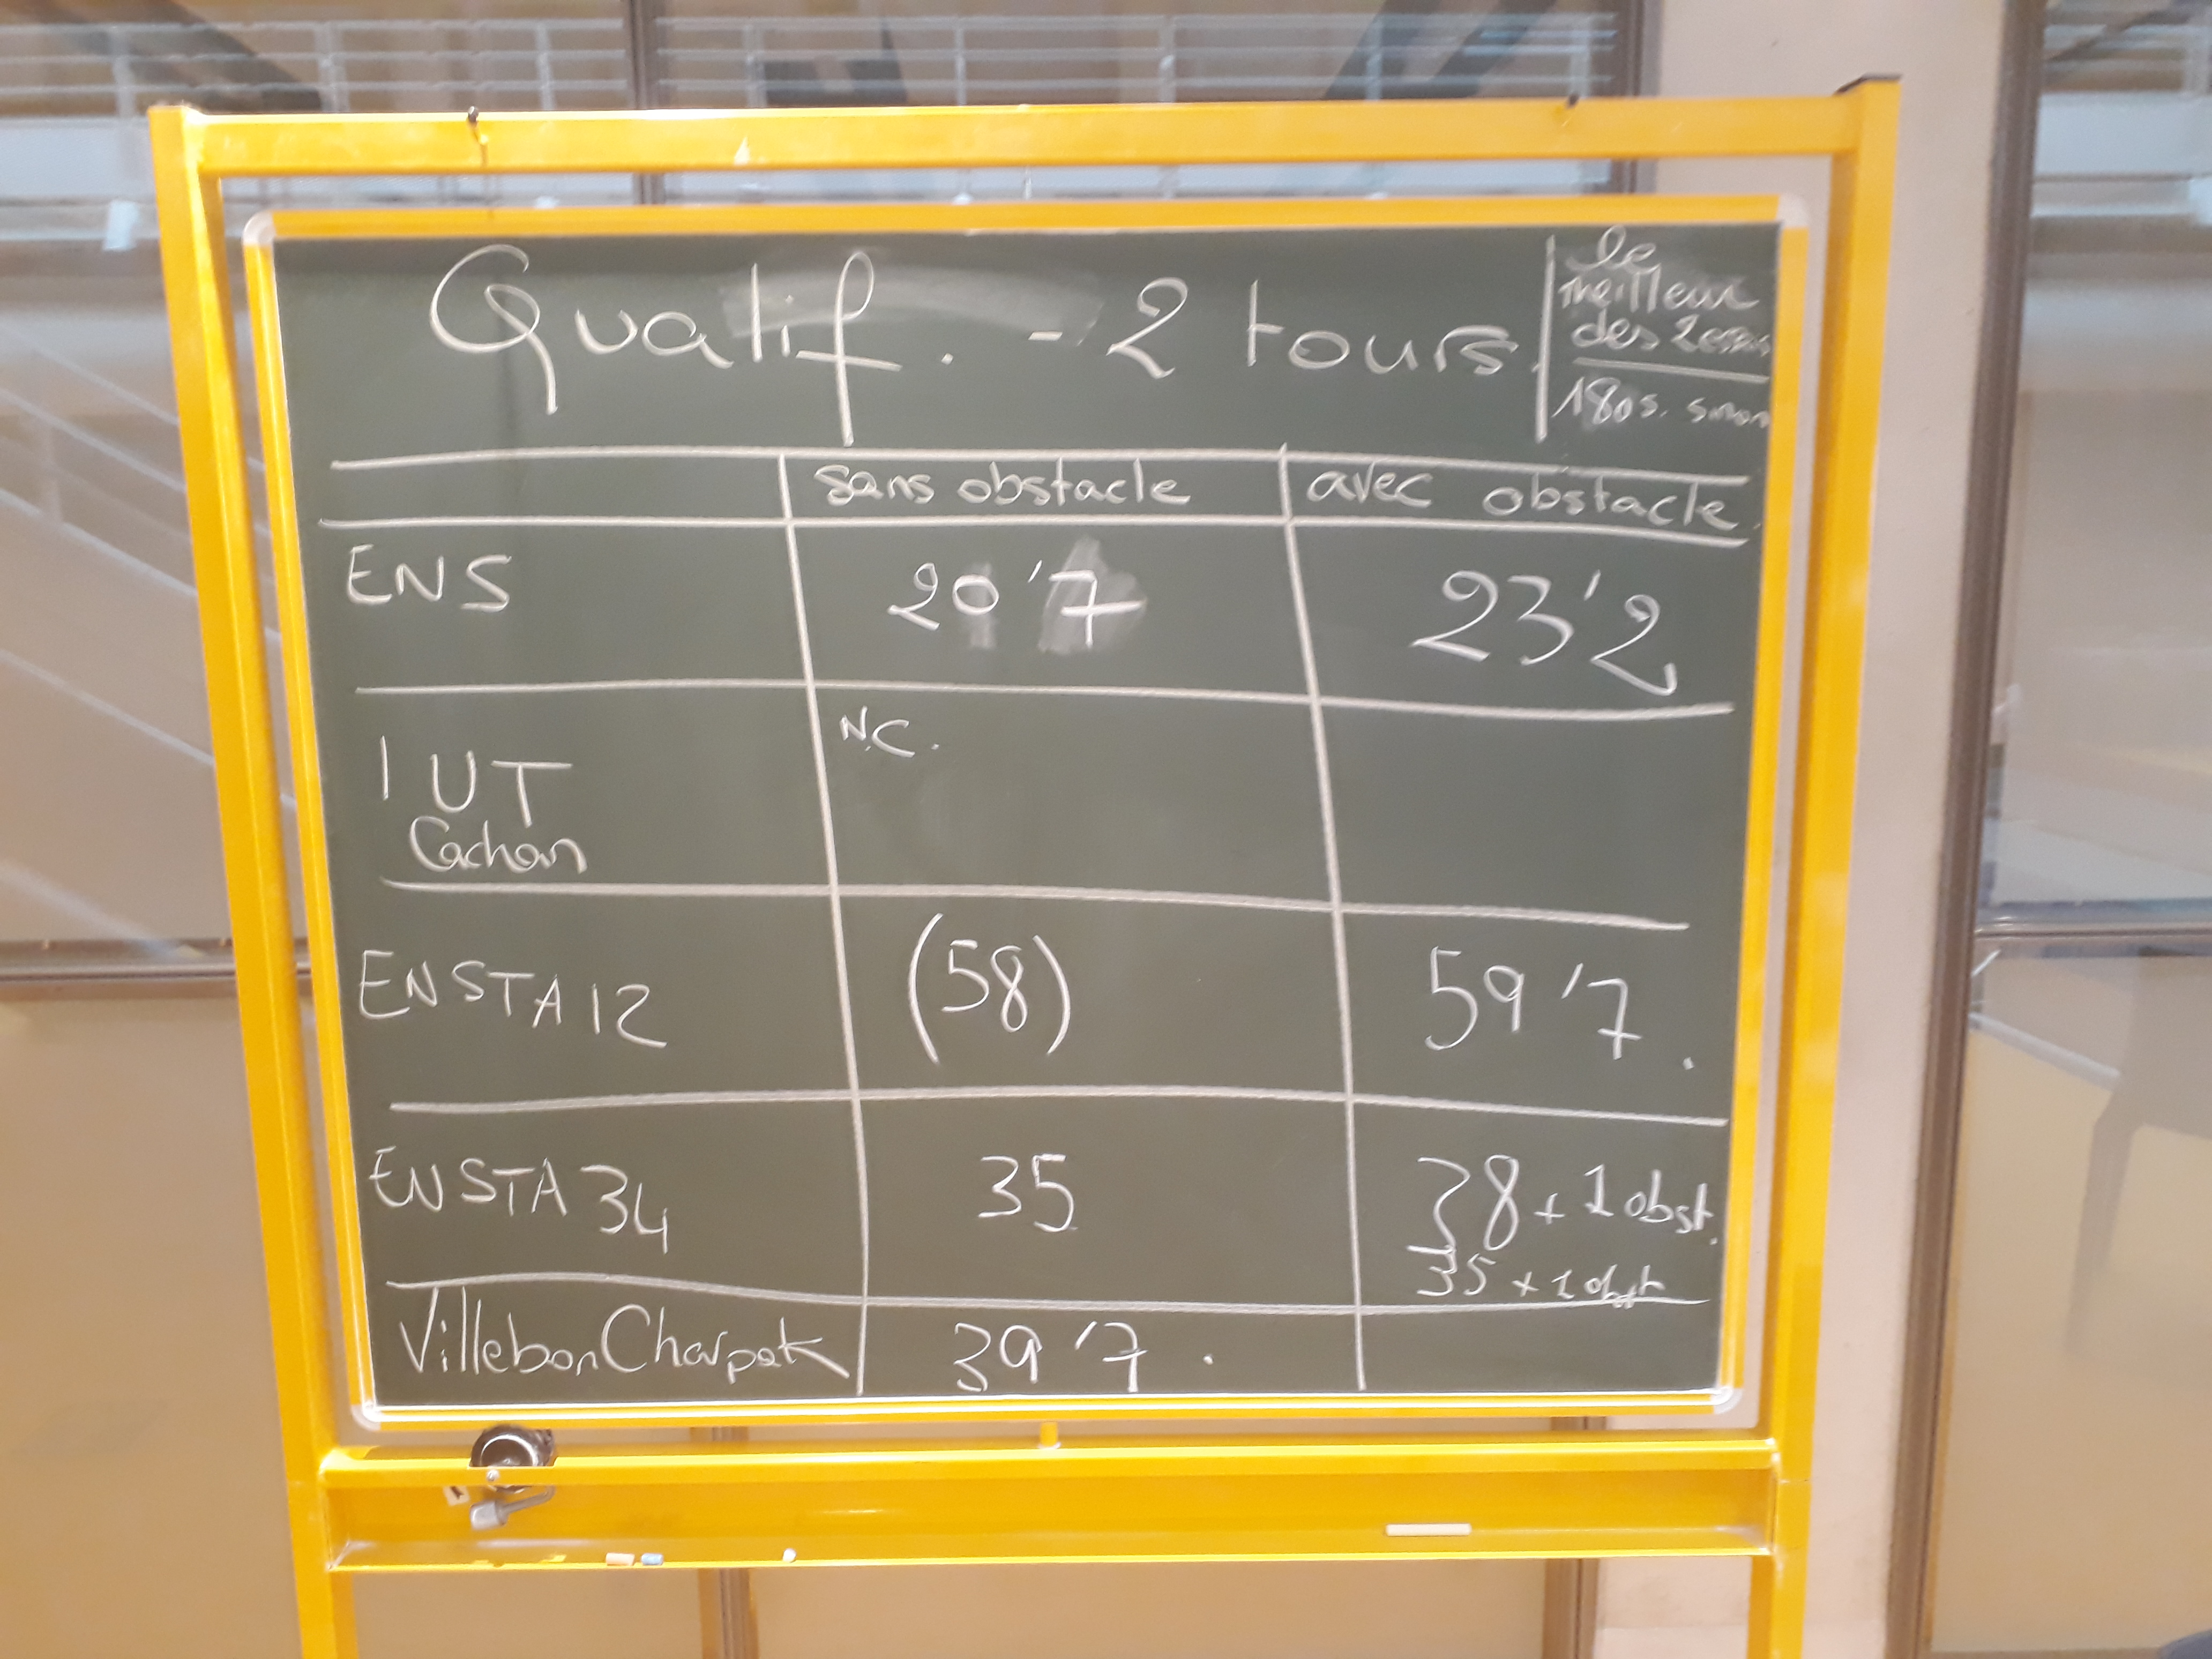 Qualif. - 2 tours
le
meilleur
des 2 essais
180s. sinon
sans obstacle avec obstacle.
ENS 20'7 23'2
IUT N.C.
Cachan
ENSTA12 (58) 59'7.
ENSTA34 35 38 + 1 obst.
35 + 1 obst
VillebonCharpak 39'7.